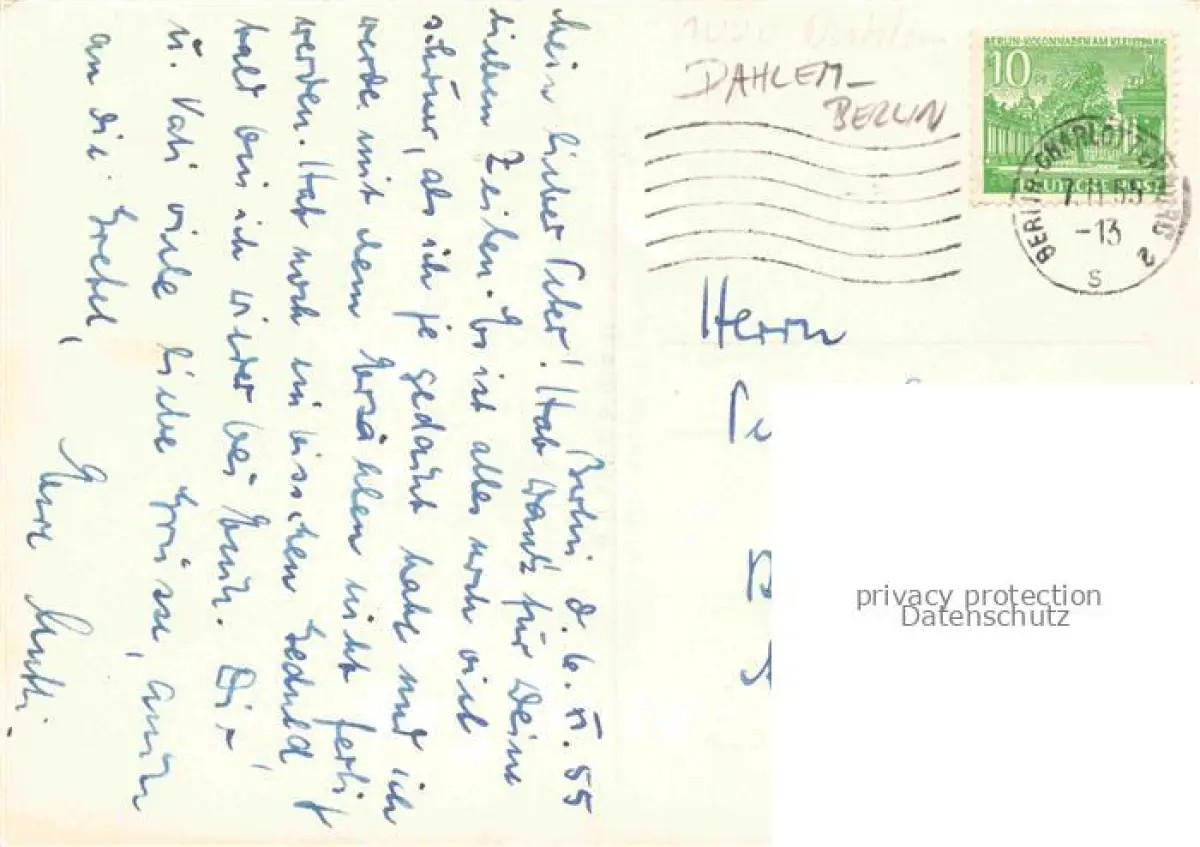 Berlin d. 6. II. 55
Mein lieber Peter! Hab Dank für Deine
lieben Zeilen. Es ist alles noch viel
schöner, als ich je gedacht habe und ich
werde mit dem Erzählen nicht fertig
werden. Hab noch ein bisschen Geduld
bald bin ich wieder bei Euch. Dir
u. Vati viele liebe Grüsse, auch
an die Gretel,
Eure Mutti.
DAHLEM-
BERLIN
BERLIN-KOLONNADEN AM KLEISTPARK
10 Pf
DEUTSCHE POST
BERLIN-CHARLOTTENBURG 2
7.11.55
-13
s
Herrn
privacy protection
Datenschutz